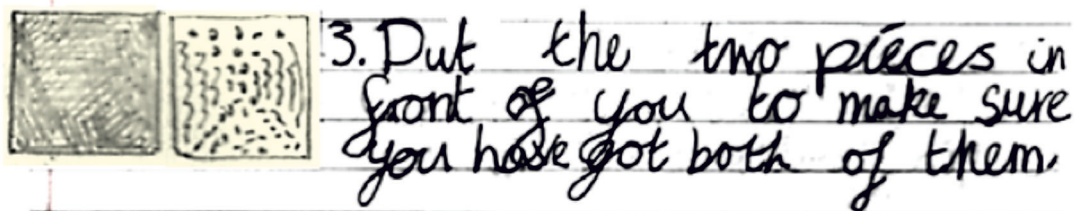 3. Put the two pieces in
front of you to make sure
you have got both of them.